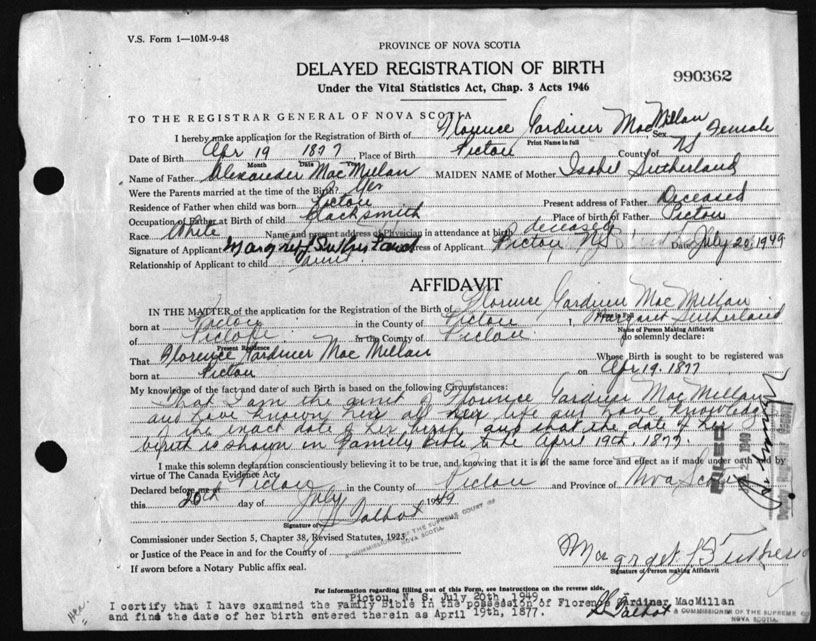 V.S. Form 1—10M-9-48
PROVINCE OF NOVA SCOTIA
DELAYED REGISTRATION OF BIRTH
990362
Under the Vital Statistics Act, Chap. 3 Acts 1946
TO THE REGISTRAR GENERAL OF NOVA SCOTIA
I hereby make application for the Registration of Birth of Florence Gardiner MacMillan Sex Female
Print Name in full
Date of Birth Apr 19 1877, Place of Birth Pictou County of NS
Month Date
Name of Father Alexander MacMillan MAIDEN NAME of Mother Isabel Sutherland
Were the Parents married at the time of the Birth Yes
Residence of Father when child was born Pictou Present address of Father Deceased
Occupation of Father at Birth of child Blacksmith Place of birth of Father Pictou
Race White Name and present address of Physician in attendance at birth deceased
Signature of Applicant Address of Applicant Pictou NS Date July 20, 1949
Relationship of Applicant to child Aunt
AFFIDAVIT
IN THE MATTER of the application for the Registration of the Birth of Florence Gardiner MacMillan
born at Pictou in the County of Pictou I, Margaret Sutherland
Name of Person Making Affidavit
of Pictou in the County of Pictou do solemnly declare:
Present Residence
That Florence Gardiner MacMillan Whose Birth is sought to be registered was
born at Pictou on Apr 19. 1877
My knowledge of the fact and date of such Birth is based on the following Circumstances:
That I am the aunt of Florence Gardiner MacMillan
and have known her all her life and have knowledge
of the exact date of her birth and that the date of her
birth is shown in Family Bible to be April 19th, 1877.
I make this solemn declaration conscientiously believing it to be true, and knowing that it is of the same force and effect as if made under oath and by
virtue of The Canada Evidence Act.
Declared before me at Pictou in the County of Pictou and Province of Nova Scotia
this 20th day of July 1949
Signature of Talbot
A COMMISSIONER OF THE SUPREME COURT OF
NOVA SCOTIA.
Commissioner under Section 5, Chapter 38, Revised Statutes, 1923
or Justice of the Peace in and for the County of
If sworn before a Notary Public affix seal.
Signature of Person making Affidavit
For Information regarding filling out of this Form, see Instructions on the reverse side.
Pictou, N. S. July 20th, 1949
I certify that I have examined the Family Bible in the possession of Florence Gardiner MacMillan
and find the date of her birth entered therein as April 19th, 1877.
Talbot
A COMMISSIONER OF THE SUPREME CO
NOVA SCOTIA.
FILED
25 1949